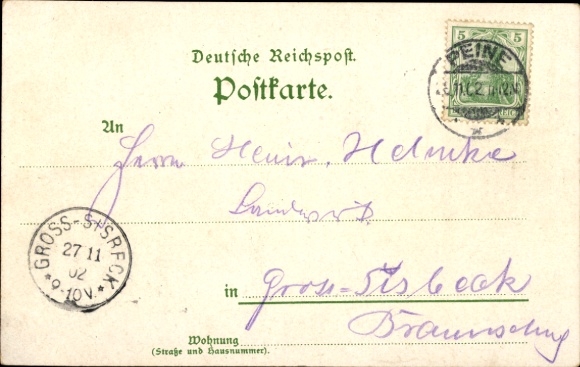 Deutsche Reichspost.
Postkarte.
5 5
PEINE
An
Herrn Heinr. Helmke
Landwirt
GROSS-SISBECK
27 11
02
* 9-10V. *
in Gross-Sisbeck
Braunschwg
Wohnung
(Straße und Hausnummer).